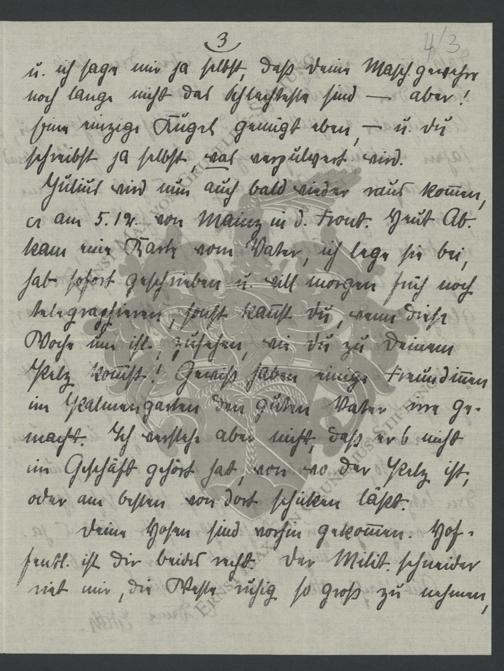 3
4/3
u. ich sage mir ja selbst, daß deine Masch.gewehre
noch lange nicht das Schlechteste sind — aber!
Eine einzige Kugel genügt eben, — u. du
schreibst ja selbst was verpulvert wird.
Julius wird nun auch bald wieder raus kommen,
ca am 5.12. von Mainz in d. Front. Heut Ab.
kam eine Karte vom Vater, ich lege sie bei,
hab sofort geschrieben u. will morgen früh noch
telegraphieren, sonst kannst du, wenn diese
Woche um ist, zusehen, wie du zu deinem
Pelz kommst! Gewiß haben einige Freundinnen
im Palmengarten den guten Vater irre ge-
macht. Ich verstehe aber nicht, daß er's nicht
im Geschäft gehört hat, von wo der Pelz ist,
oder am besten von dort schicken läßt.
Deine Hosen sind vorhin gekommen. Hof-
fentl. ist dir beides recht. Der Milit. schneider
riet mir, die Weste ruhig so groß zu nehmen,